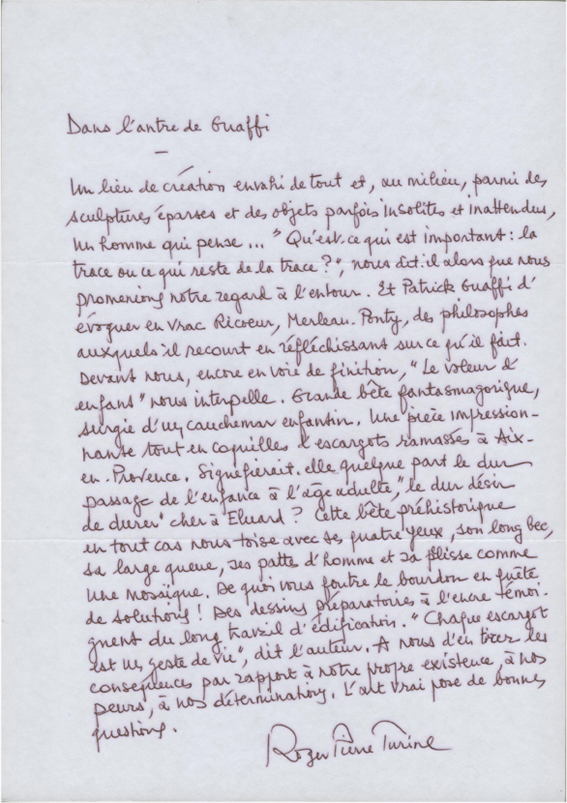 Dans l'antre de Guaffi
Un lieu de création envahi de tout et, au milieu, parmi des
sculptures éparses et des objets parfois insolites et inattendus,
un homme qui pense... "Qu'est-ce qui est important : la
trace ou ce qui reste de la trace ?", nous dit-il alors que nous
promenions notre regard à l'entour. Et Patrick Guaffi d'
évoquer en vrac Ricoeur, Merleau-Ponty, des philosophes
auxquels il recourt en réfléchissant sur ce qu'il fait.
Devant nous, encore en voie de finition, "Le voleur d'
enfants" nous interpelle. Grande bête fantasmagorique,
surgie d'un cauchemar enfantin. Une pièce impression-
nante tout en coquilles d'escargots ramassés à Aix-
en-Provence. Signifierait-elle quelque part le dur
passage de l'enfance à l'âge adulte, "le dur désir
de durer" cher à Eluard ? Cette bête préhistorique
en tout cas nous toise avec ses quatre yeux, son long bec,
sa large queue, ses pattes d'homme et sa pelisse comme
une mosaïque. De quoi vous foutre le bourdon en quête
de solutions ! Des dessins préparatoires à l'encre témoi-
gnent du long travail d'édification. "Chaque escargot
est un geste de vie", dit l'auteur. A nous d'en tirer les
conséquences par rapport à notre propre existence, à nos
peurs, à nos déterminations. L'art vrai pose de bonnes
questions.
Roger Pierre Turine